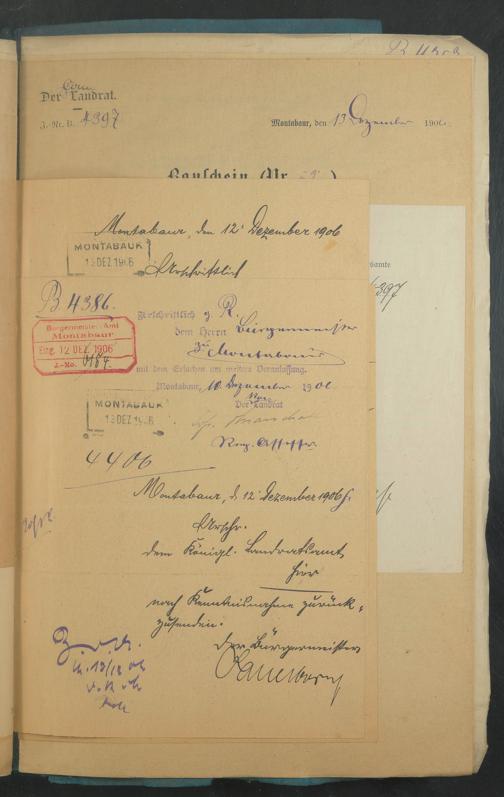 B 4393
Der Landrat.
J.-Nr. B. 4397
Montabaur, den 13 Dezember 1906.
Bauschein (Nr. )
Montabaur, den 12 Dezember 1906
MONTABAUR
13 DEZ 1906
Urschriftlich
B 4386.
Urschriftlich g. R.
Bürgermeister-Amt
Montabaur
Eing. 12 DEZ. 1906
J.-No. 6184.
dem Herrn Bürgermeister
zu Montabaur
mit dem Ersuchen um weitere Veranlassung.
Montabaur, 10 Dezember 1906
Der Landrat
MONTABAUR
13 DEZ 1906
Reg. Assessor
4406
Montabaur, d. 12 Dezember 1906
Urschr.
dem Königl. Landratsamt
hier
nach Kenntnisnahme zurück-
zusenden.
Der Bürgermeister
samte
4397